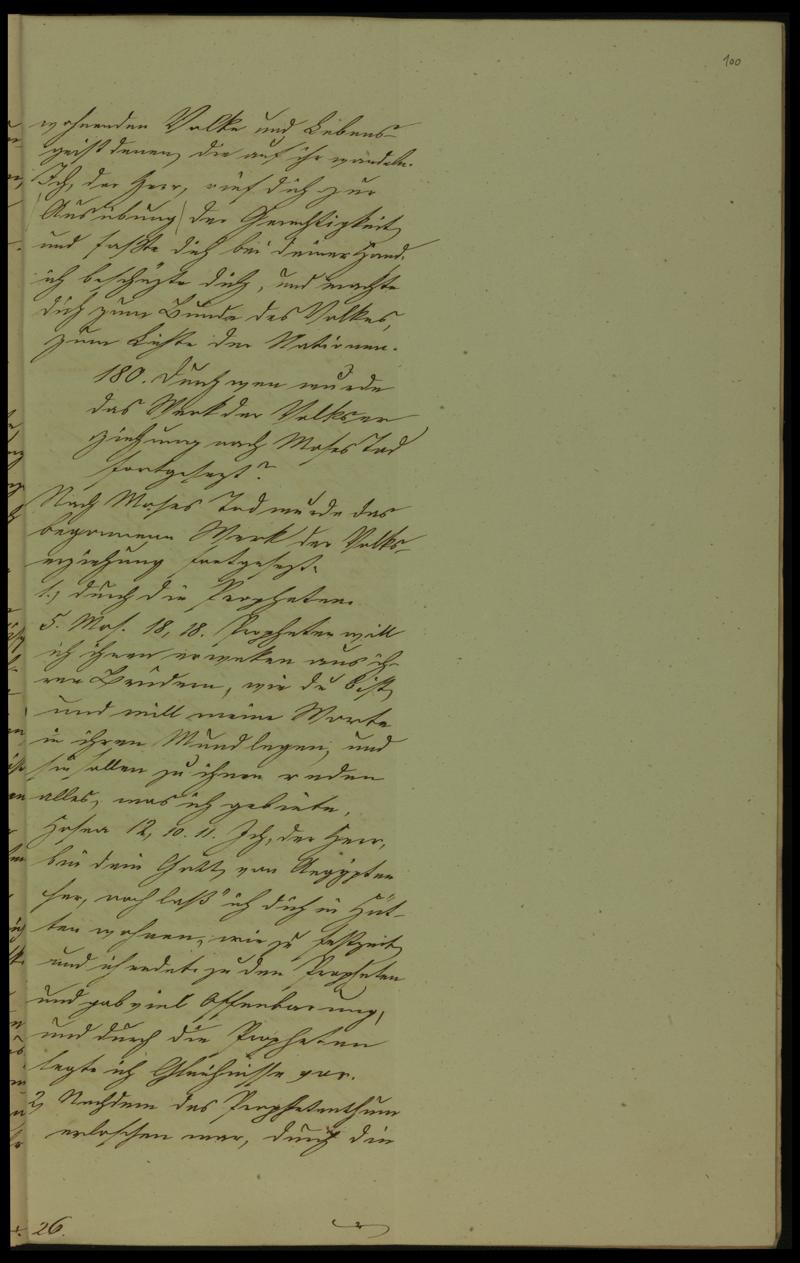 100
wohnenden Volke und Lebens-
geist denen, die auf ihr wandeln.
Ich, der Herr, rief dich zur
(Ausübung) der Gerechtigkeit,
und faßte dich bei deiner Hand,
ich beschüzte dich, und machte
dich zum Bunde des Volkes,
zum Lichte der Nationen.
180. Durch wen wurde
das Werk der Volkser
ziehung nach Moses Tod
fortgesezt?
Nach Moses Tod wurde das
begonnene Werk der Volks-
erziehung fortgesezt.
1., durch die Propheten.
5. Mos. 18, 18. Propheten will
ich ihnen erweken aus ih-
ren Brüdern, wie du bist,
und will meine Worte
in ihren Mund legen, und
sie sollen zu ihnen reden
alles, was ich gebiete.
Hosea 12, 10. 11. Ich, der Herr,
bin dein Gott, von Aegypten
her, noch laß' ich dich in Hüt-
ten wohnen, wie zu Festzeit,
und ich redete zu den Propheten
und gab viel Offenbarung,
und durch die Propheten
legte ich Gleichnisse vor.
2, Nachdem das Prophetenthum
erloschen war, durch die
26.